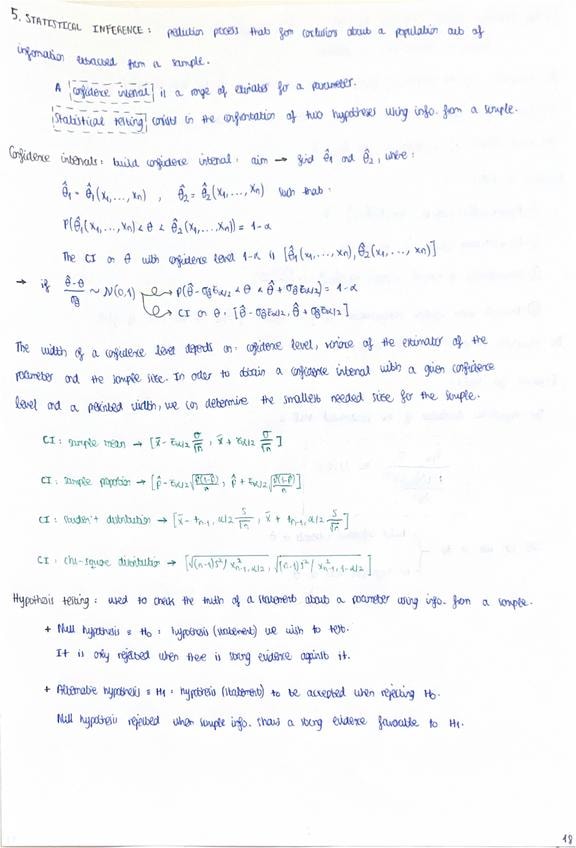 5. STATISTICAL INFERENCE: prediction process that form conclusions about a population out of
information extracted from a sample.
A confidence interval is a range of estimates for a parameter.
Statistical testing consists in the confrontation of two hypotheses using info. from a sample.
Confidence intervals: build confidence interval: aim → find θ̂₁ and θ̂₂, where:
θ̂₁ = θ̂₁(x₁,...,xn) , θ̂₂ = θ̂₂(x₁,...,xn) such that:
P(θ̂₁(x₁,...,xn) < θ < θ̂₂(x₁,...,xn)) = 1-α
The CI on θ with confidence level 1-α is [θ̂₁(x₁,...,xn), θ̂₂(x₁,...,xn)]
→ if (θ̂-θ)/σθ̂ ~ N(0,1) → P(θ̂ - σθ̂ zα/2 < θ < θ̂ + σθ̂ zα/2) = 1-α
→ CI on θ: [θ̂ - σθ̂ zα/2, θ̂ + σθ̂ zα/2]
The width of a confidence level depends on: confidence level, variance of the estimator of the
parameter and the sample size. In order to obtain a confidence interval with a given confidence
level and a width, we can determine the smallest needed size for the sample.
CI: sample mean → [x̄ - zα/2 σ/√n , x̄ + zα/2 σ/√n]
CI: sample proportion → [p̂ - zα/2 √(p̂(1-p̂)/n) , p̂ + zα/2 √(p̂(1-p̂)/n)]
CI: student t distribution → [x̄ - tn-1, α/2 S/√n , x̄ + tn-1, α/2 S/√n]
CI: chi-square distribution → [√((n-1)S²/χ²n-1, α/2) , √((n-1)S²/χ²n-1, 1-α/2)]
Hypothesis testing: used to check the truth of a statement about a parameter using info. from a sample.
+ Null hypothesis = H₀ : hypothesis (statement) we wish to test.
It is only rejected when there is strong evidence against it.
+ Alternative hypothesis = H₁ : hypothesis (statement) to be accepted when rejecting H₀.
Null hypothesis rejected when sample info. shows a strong evidence favorable to H₁.
18